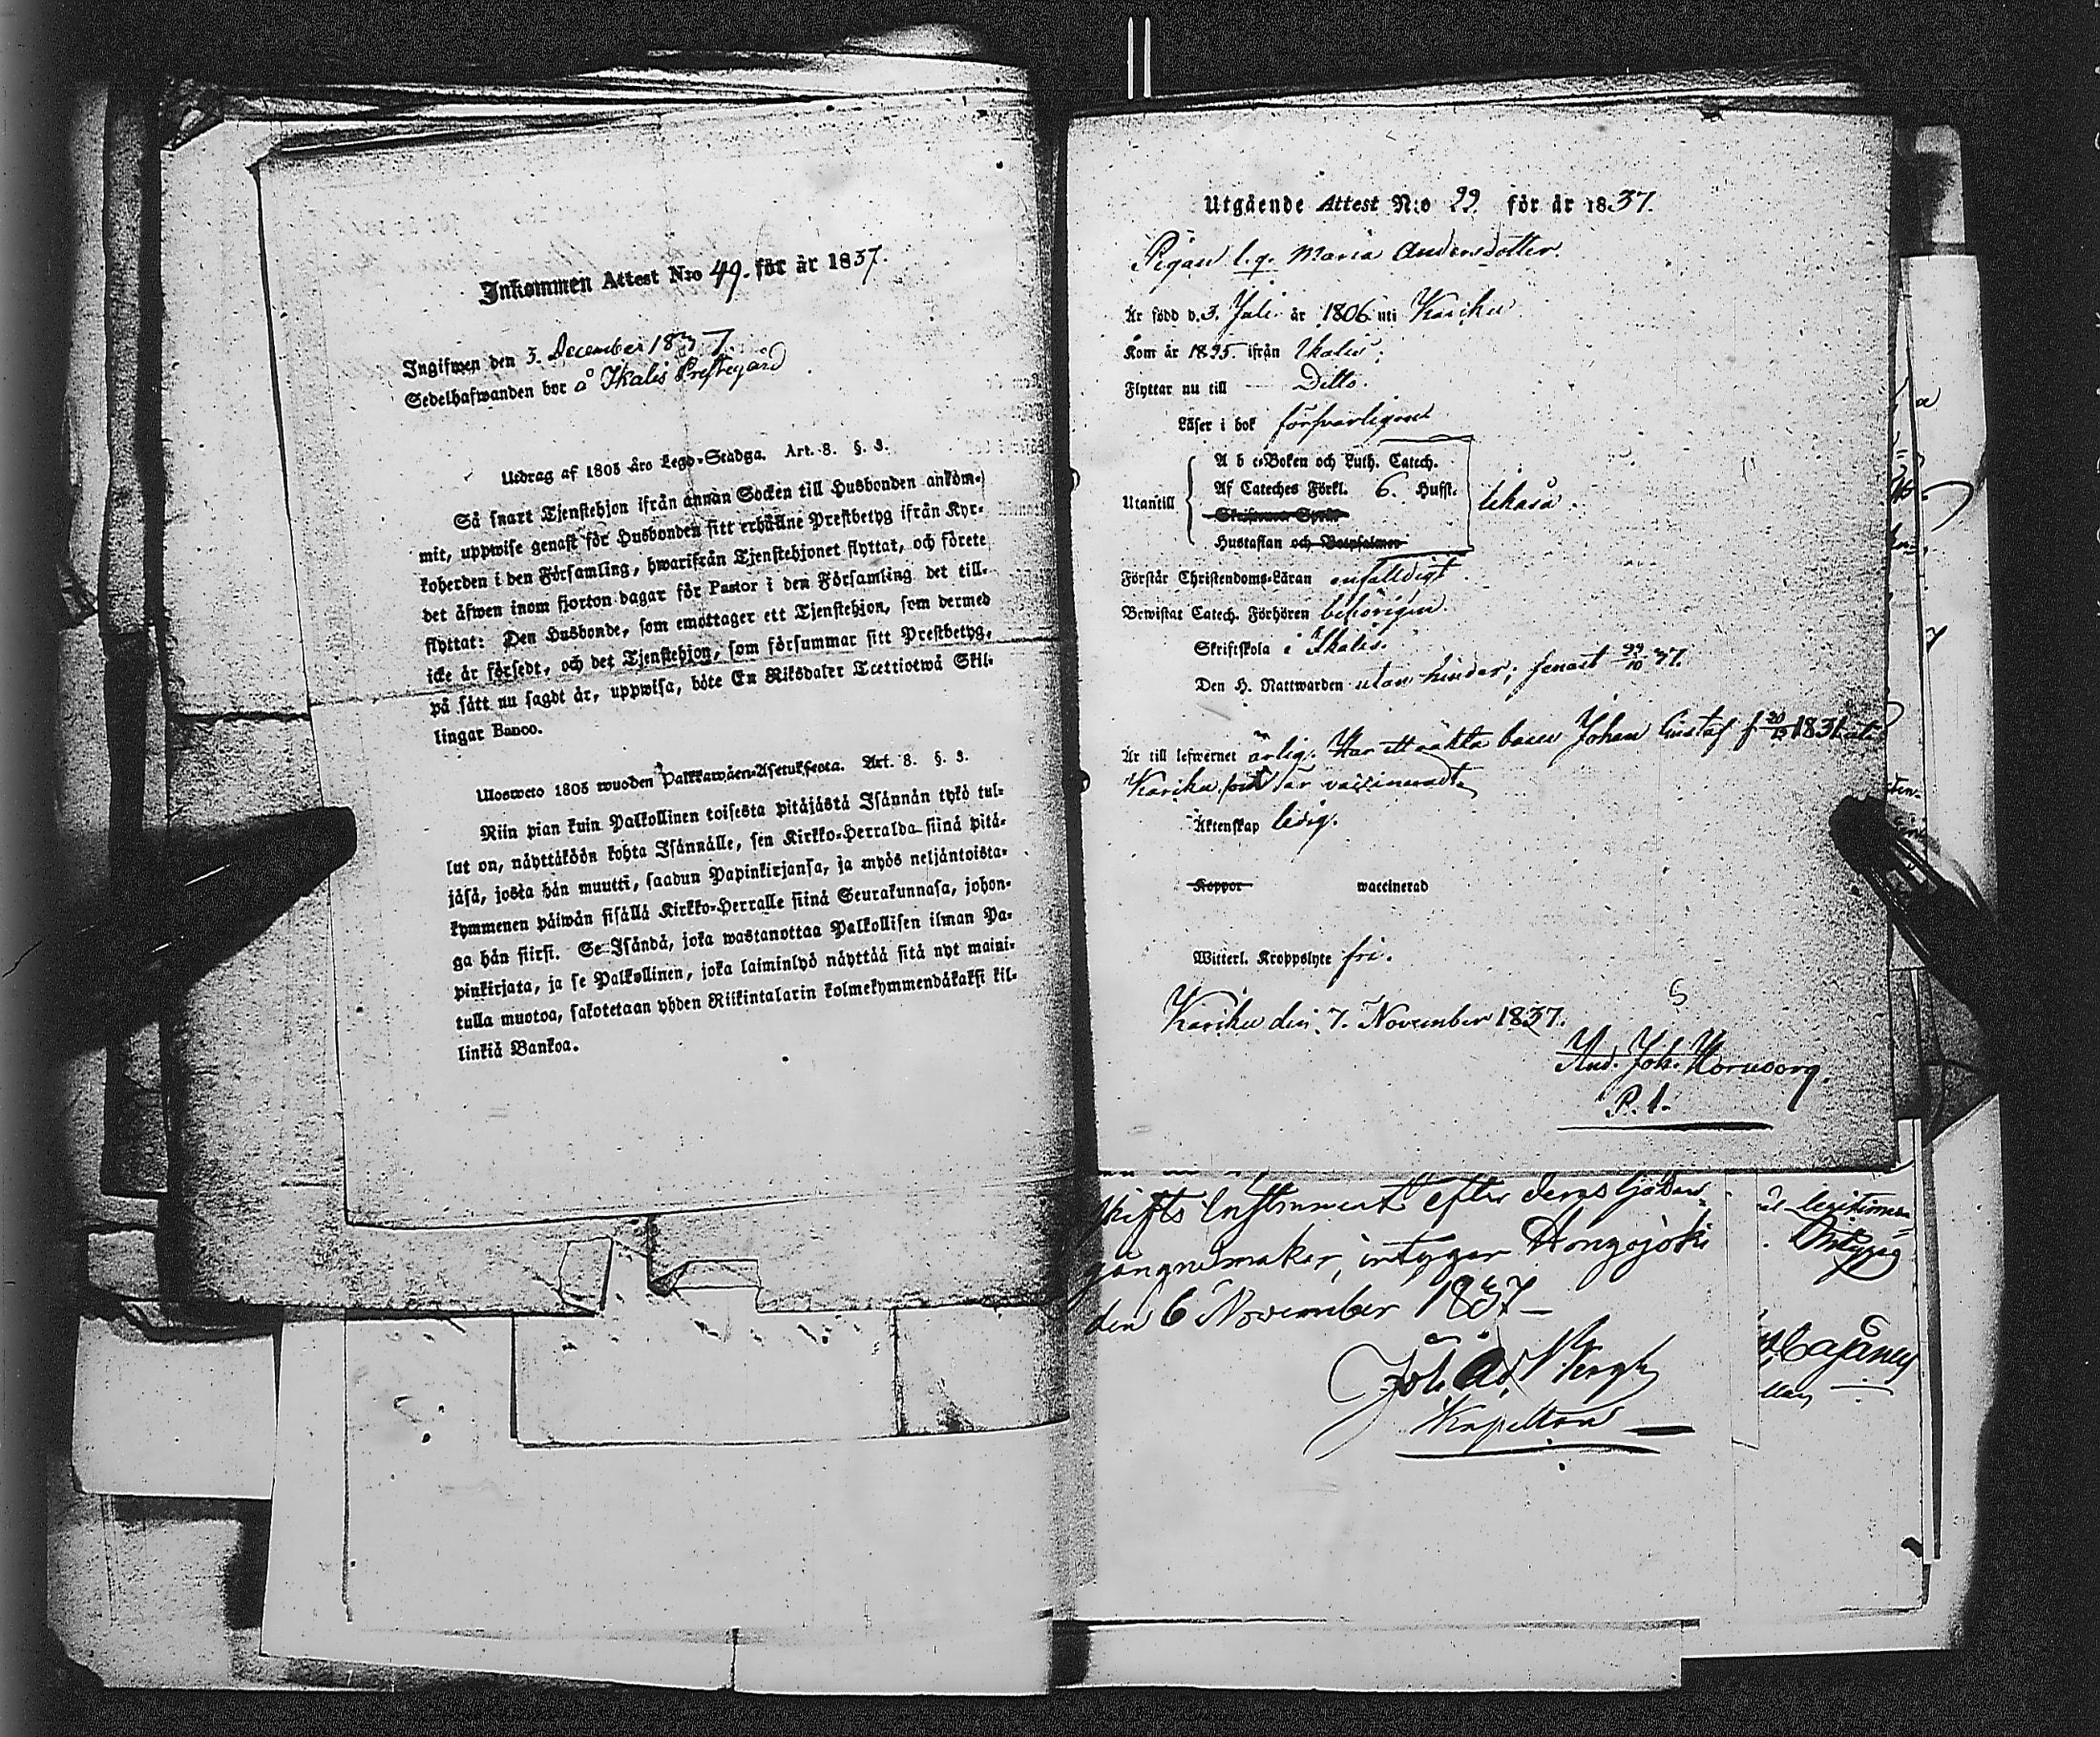 Inkommen Attest N:o 49. för år 1837.
Ingifwen den 3. December 1837.
Sedelhafwanden bor å Ikalis Prestegård
Utdrag af 1805 års Lego-Stadga. Art. 8. §. 3.
Så snart Tjenstehjon ifrån annan Socken till Husbonden ankom-
mit, uppwise genast för Husbonden sitt erhållne Prestbetyg ifrån Kyr-
koherden i den Församling, hwarifrån Tjenstehjonet flyttat, och förete
det äfwen inom fjorton dagar för Pastor i den Församling det till-
flyttat: Den Husbonde, som emottager ett Tjenstehjon, som dermed
icke är försedt, och det Tjenstehjon, som försummar sitt Prestbetyg,
på sätt nu sagdt är, uppwisa, böte En Riksdaler Trettiotwå Skil-
lingar Banco.
Ulosweto 1805 wuoden Palkkawäen-Asetuksesta. Art. 8. §. 3.
Niin pian kuin Palkollinen toisesta pitäjästä Isännän tykö tul-
lut on, näyttäköön kohta Isännälle, sen Kirkko-Herralda siinä pitä-
jäsä, josta hän muutti, saadun Papinkirjansa, ja myös neljäntoista-
kymmenen päiwän sisällä Kirkko-Herralle siinä Seurakunnasa, johon-
ga hän siirsi. Se Isändä, joka wastanottaa Palkollisen ilman Pa-
pinkirjata, ja se Palkollinen, joka laiminlyö näyttää sitä nyt maini-
tulla muotoa, sakotetaan yhden Riikintalarin kolmekymmendäkaksi kil-
linkiä Bankoa.
Utgående Attest N:o 99. för år 1837.
Pigan l.q. Maria Andersdotter.
Är född d. 3. Juli år 1806 uti Kariku
Kom år 1835. ifrån Ikalis;
Flyttar nu till Ditto.
Läser i bok försvarligen
A b c-Boken och Luth. Catech.
Af Cateches Förkl. 6. Hufst.
Utantill likaså.
Hustaflan och Botpsalmer
Förstår Christendoms-Läran enfaldigt
Bewistat Catech. Förhören behörigen.
Skriftskola i Ikalis.
Den H. Nattwarden utan hinder; senast 29/10 37.
Är till lefwernet ärlig. Har ett oäkta barn Johan Gustaf f 1831 uti
Kariku är vaccineradt.
Äktenskap ledig.
Koppor waccinerad
Witterl. Kroppslyte fri.
Kariku den 7. November 1837.
And. Joh. Hornborg
P. l.
skifts Instrument efter deras
intygar Hongojoki
den 6 November 1837
Joh. Ad. Bergh
Kapellan
legitimer
Cajaney